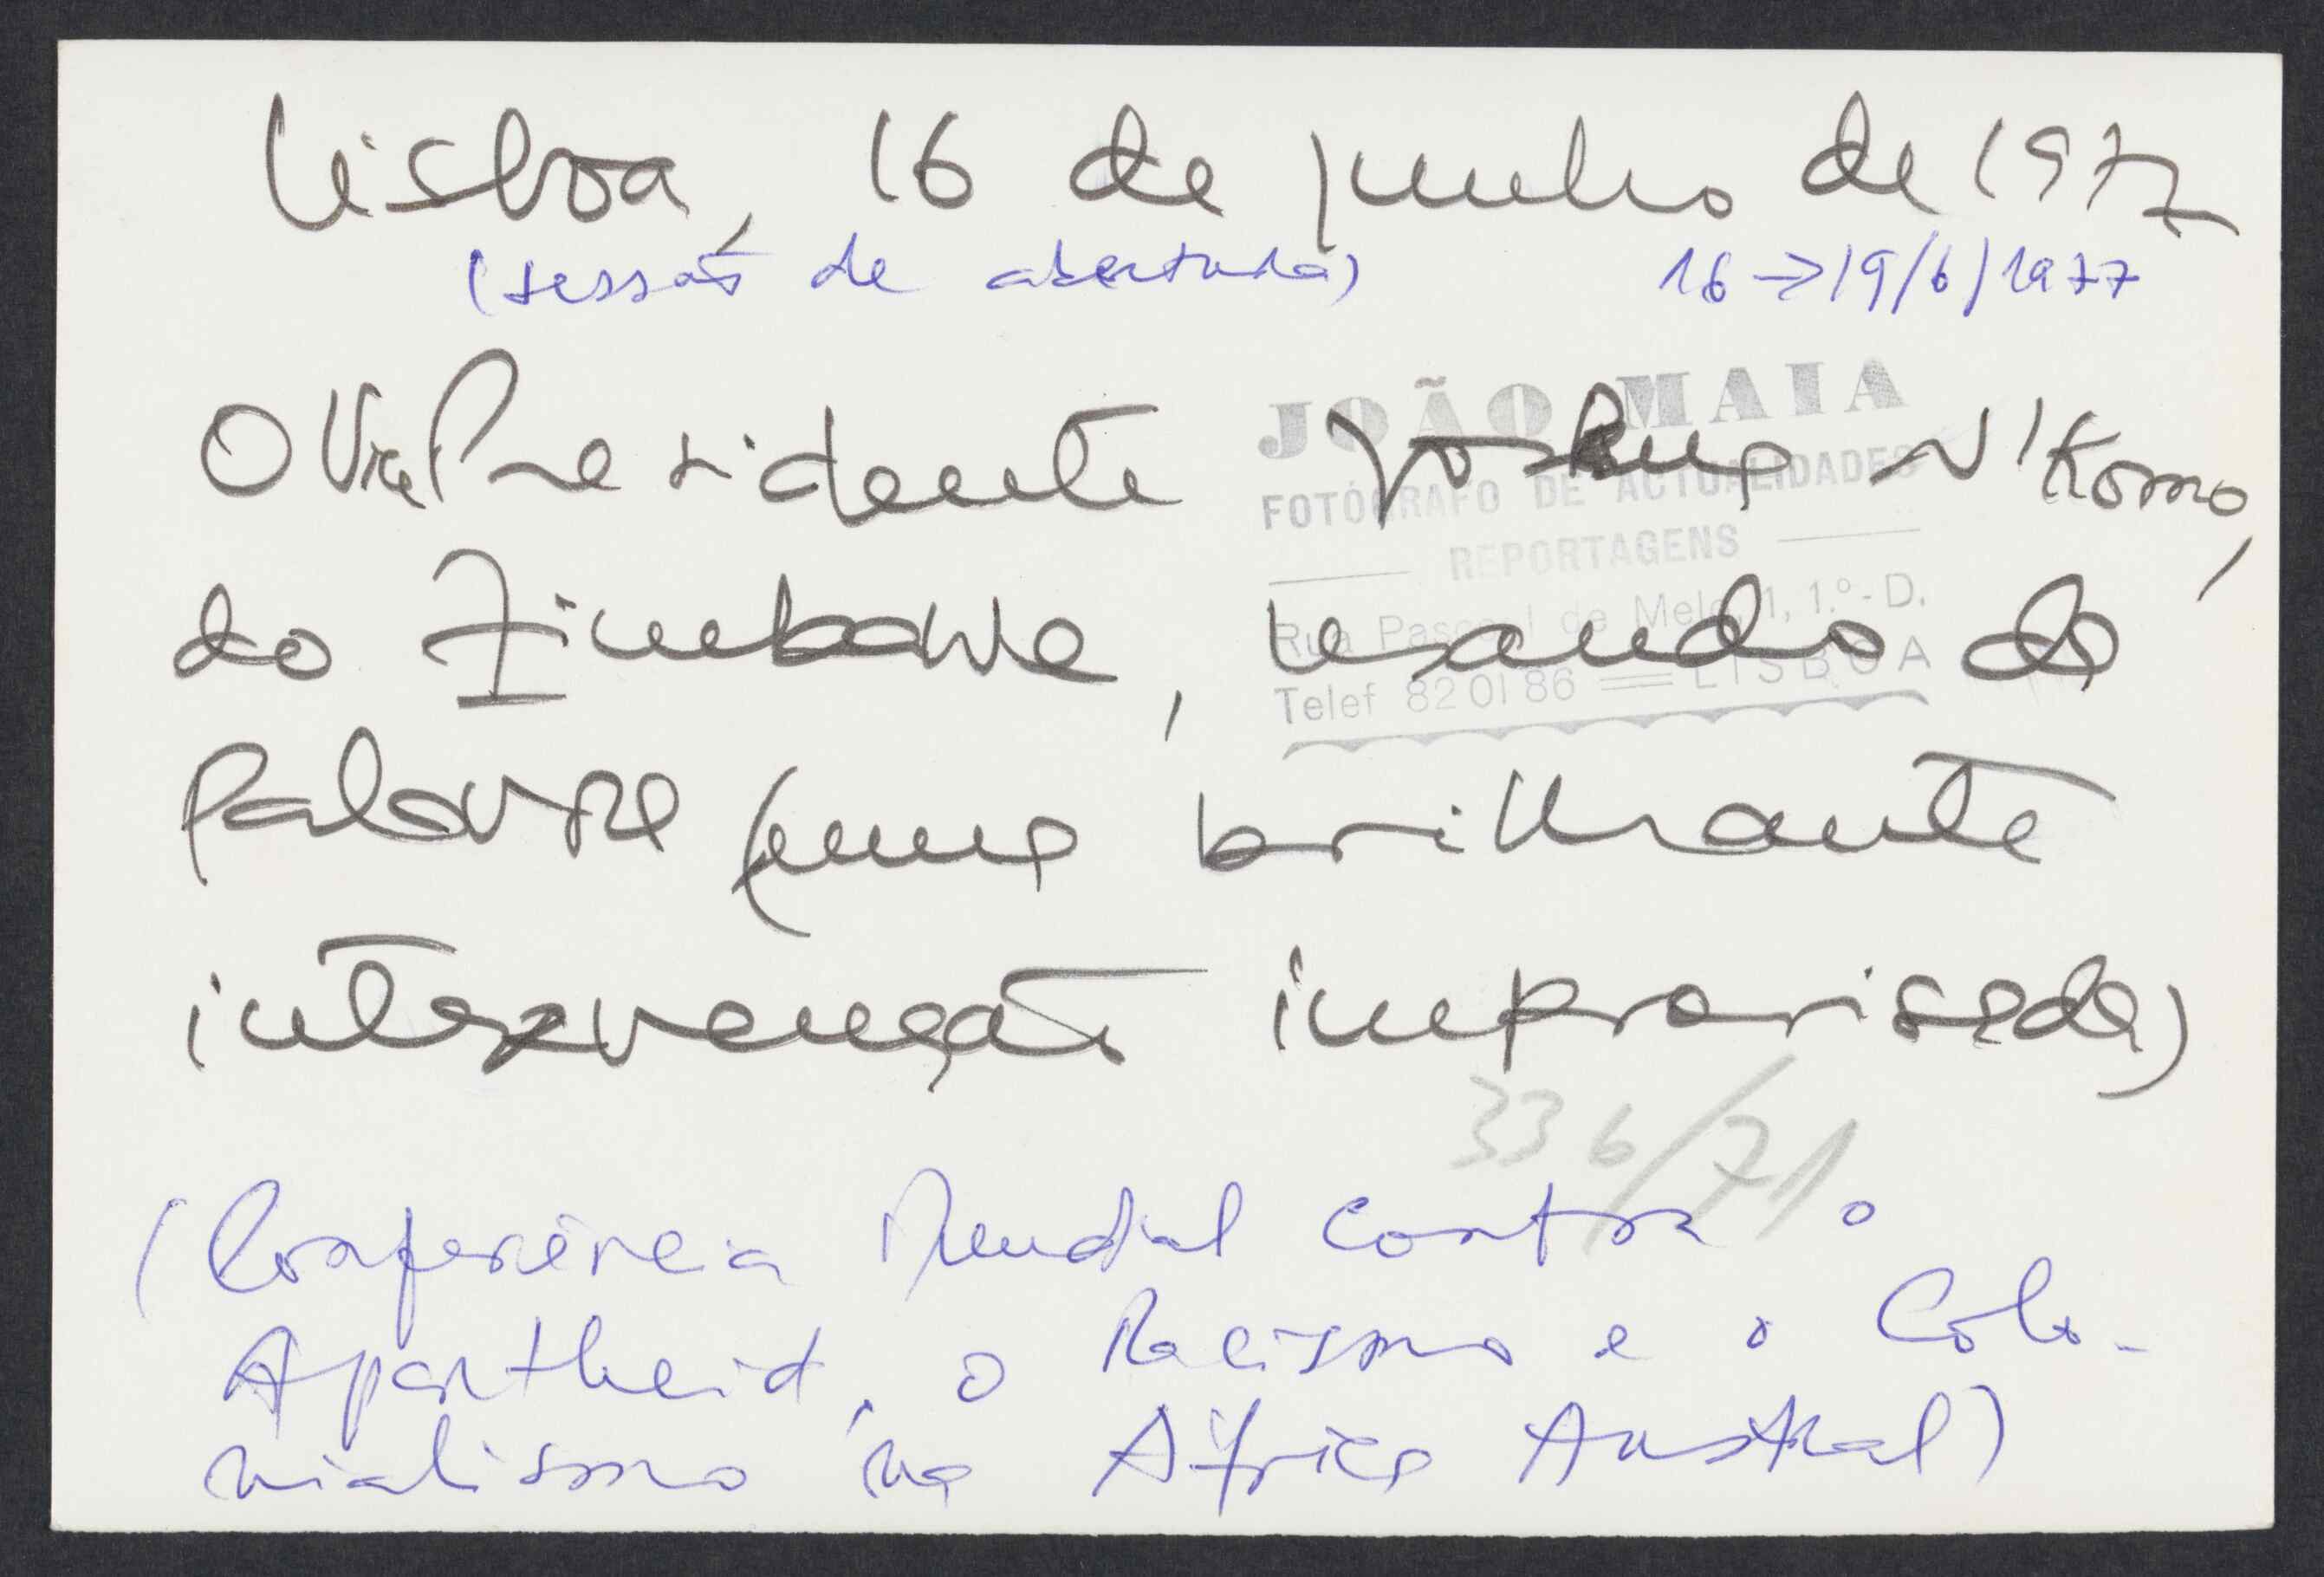 Lisboa, 16 de junho de 1977
(sessão de abertura) 16→19/6/1977
O Vice Presidente Joshua N'Komo,
do Zimbabwe, usando da
palavra (numa brilhante
intervenção improvisada)
JOÃO MAIA
FOTÓGRAFO DE ACTUALIDADES
REPORTAGENS
Rua Pascoal de Melo, 1, 1.º-D.
Telef 82 01 86 = LISBOA
336/71
(Conferência Mundial contra o
Apartheid, o Racismo e o Colo-
nialismo na África Austral)